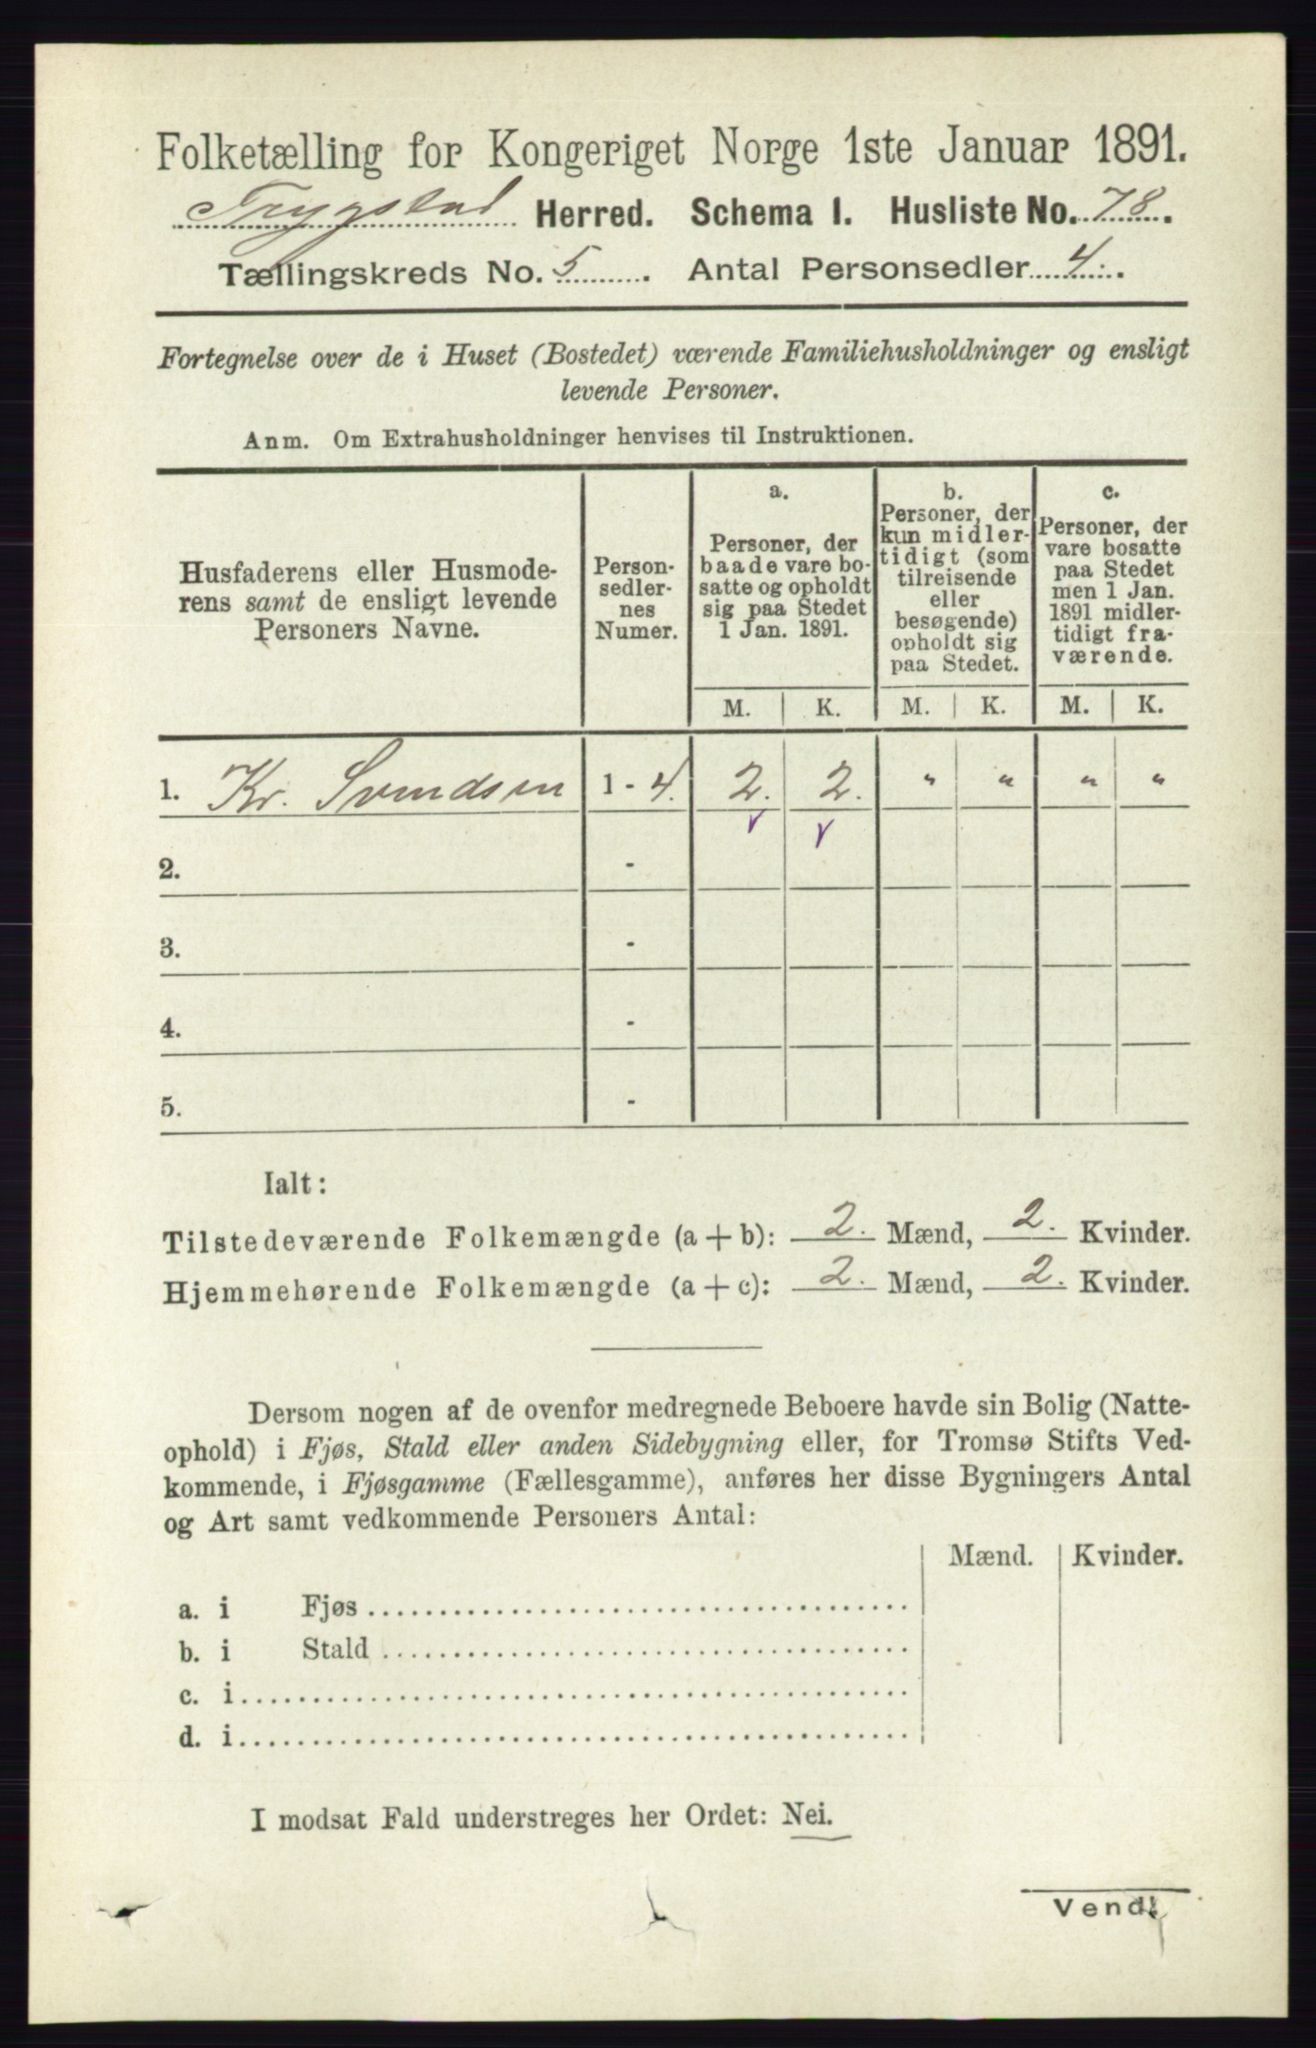 Folketælling for Kongeriget Norge 1ste Januar 1891.
Trygstad Herred. Schema I. Husliste No. 78.
Tællingskreds No. 5. Antal Personsedler 4.
Fortegnelse over de i Huset (Bostedet) værende Familiehusholdninger og ensligt
levende Personer.
Anm. Om Extrahusholdninger henvises til Instruktionen.
Husfaderens eller Husmode-
rens samt de ensligt levende
Personers Navne.
Person-
sedler-
nes
Numer.
a.
Personer, der
baade vare bo-
satte og opholdt
sig paa Stedet
1 Jan. 1891.
b.
Personer, der
kun midler-
tidigt (som
tilreisende
eller
besøgende)
opholdt sig
paa Stedet.
c.
Personer, der
vare bosatte
paa Stedet
men 1 Jan.
1891 midler-
tidigt fra-
værende.
M. K. M. K. M. K.
1. Kr. Svendsen 1 - 4. 2. 2. " " " "
2. -
3. -
4. -
5. -
Ialt:
Tilstedeværende Folkemængde (a + b): 2. Mænd, 2. Kvinder.
Hjemmehørende Folkemængde (a + c): 2. Mænd, 2. Kvinder.
Dersom nogen af de ovenfor medregnede Beboere havde sin Bolig (Natte-
ophold) i Fjøs, Stald eller anden Sidebygning eller, for Tromsø Stifts Ved-
kommende, i Fjøsgamme (Fællesgamme), anføres her disse Bygningers Antal
og Art samt vedkommende Personers Antal:
Mænd. Kvinder.
a. i Fjøs
b. i Stald
c. i
d. i
I modsat Fald understreges her Ordet: Nei.
Vend!